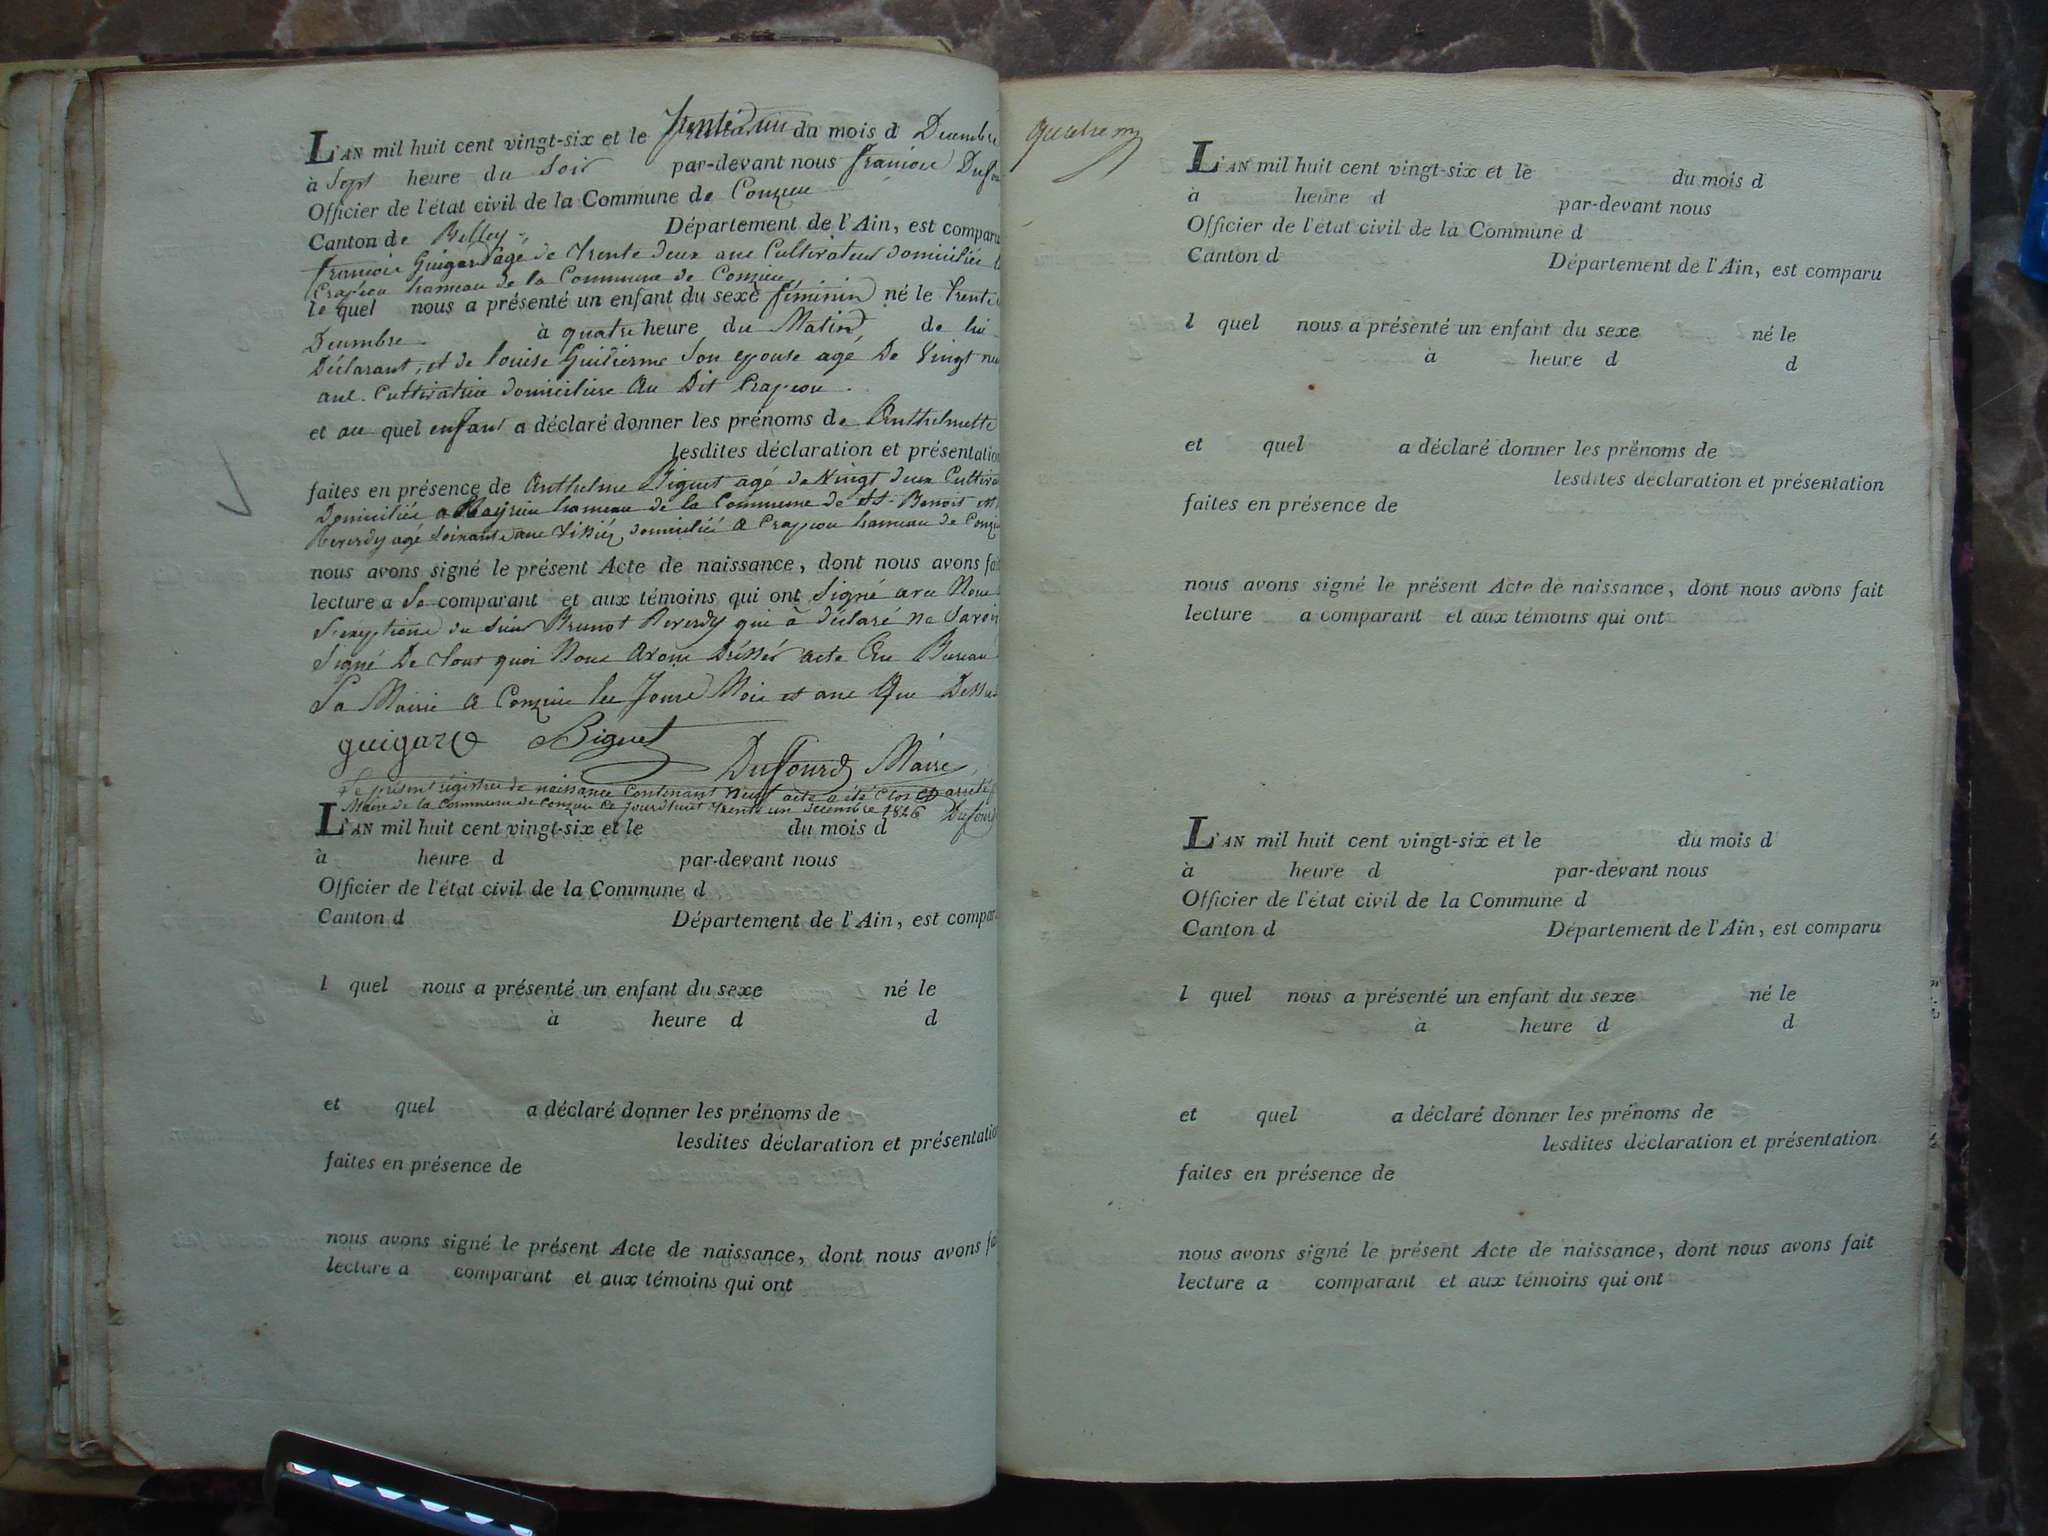 L'AN mil huit cent vingt-six et le trente un du mois d Decembre
à Sept heure du Soir par-devant nous francois Dufou
Officier de l'état civil de la Commune de Conzieu
Canton de Belley Département de l'Ain, est comparu
francois Guigard agé de trente deux ans Cultivateur domicilié
Crapeou hameau de la Commune de Conzieu
le quel nous a présenté un enfant du sexe féminin né le trente
Decembre à quatre heure du Matin de lui
Déclarant, et de louise Guillerme Son epouse agé De Vingt neu
ans Cultivatrice domiciliée Au Dit Crapeou.
et au quel enfant a déclaré donner les prénoms de Anthelmette
lesdites déclaration et présentation
faites en présence de Anthelme Biguet agé de Vingt deux Cultiva
Domicilié a hameau de la Commune de St Benoit et
Reverdy agé Soixante ans domicilié a Crapeou hameau de Conzi
nous avons signé le présent Acte de naissance, dont nous avons fai
lecture a Se comparant et aux témoins qui ont Signé avec Nous
du Sieur Brunot Reverdy qui à déclaré ne Savoir
Signé De tout quoi Nous Avons Dréssér acte En Bureau
La Mairie a Conzieu les Jours Mois et ans Que Dessus
guigard Biguet Duffourd Maire
Le présent régistre de naissance Contenant neuf acte a été Clos et arrété
Maire de la Commune de Conzieu Ce jourdhuit trente un decembre 1826 Dufour
L'AN mil huit cent vingt-six et le du mois d
à heure d par-devant nous
Officier de l'état civil de la Commune d
Canton d Département de l'Ain, est compar
l quel nous a présenté un enfant du sexe né le
à heure d d
et quel a déclaré donner les prénoms de
lesdites déclaration et présentation
faites en présence de
nous avons signé le présent Acte de naissance, dont nous avons fa
lecture a comparant et aux témoins qui ont
L'AN mil huit cent vingt-six et le du mois d
à heure d par-devant nous
Officier de l'état civil de la Commune d
Canton d Département de l'Ain, est comparu
l quel nous a présenté un enfant du sexe né le
à heure d d
et quel a déclaré donner les prénoms de
lesdites déclaration et présentation
faites en présence de
nous avons signé le présent Acte de naissance, dont nous avons fait
lecture a comparant et aux témoins qui ont
L'AN mil huit cent vingt-six et le du mois d
à heure d par-devant nous
Officier de l'état civil de la Commune d
Canton d Département de l'Ain, est comparu
l quel nous a présenté un enfant du sexe né le
à heure d d
et quel a déclaré donner les prénoms de
lesdites déclaration et présentation
faites en présence de
nous avons signé le présent Acte de naissance, dont nous avons fait
lecture a comparant et aux témoins qui ont